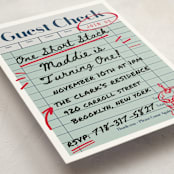 Guest Check
JOIN US
One Short Stack
Maddie is
Turning One!
NOVEMBER 10TH AT 9AM
THE CLARK'S RESIDENCE
920 CARROLL STREET
BROOKLYN, NEW YORK
RSVP: 718-317-5827